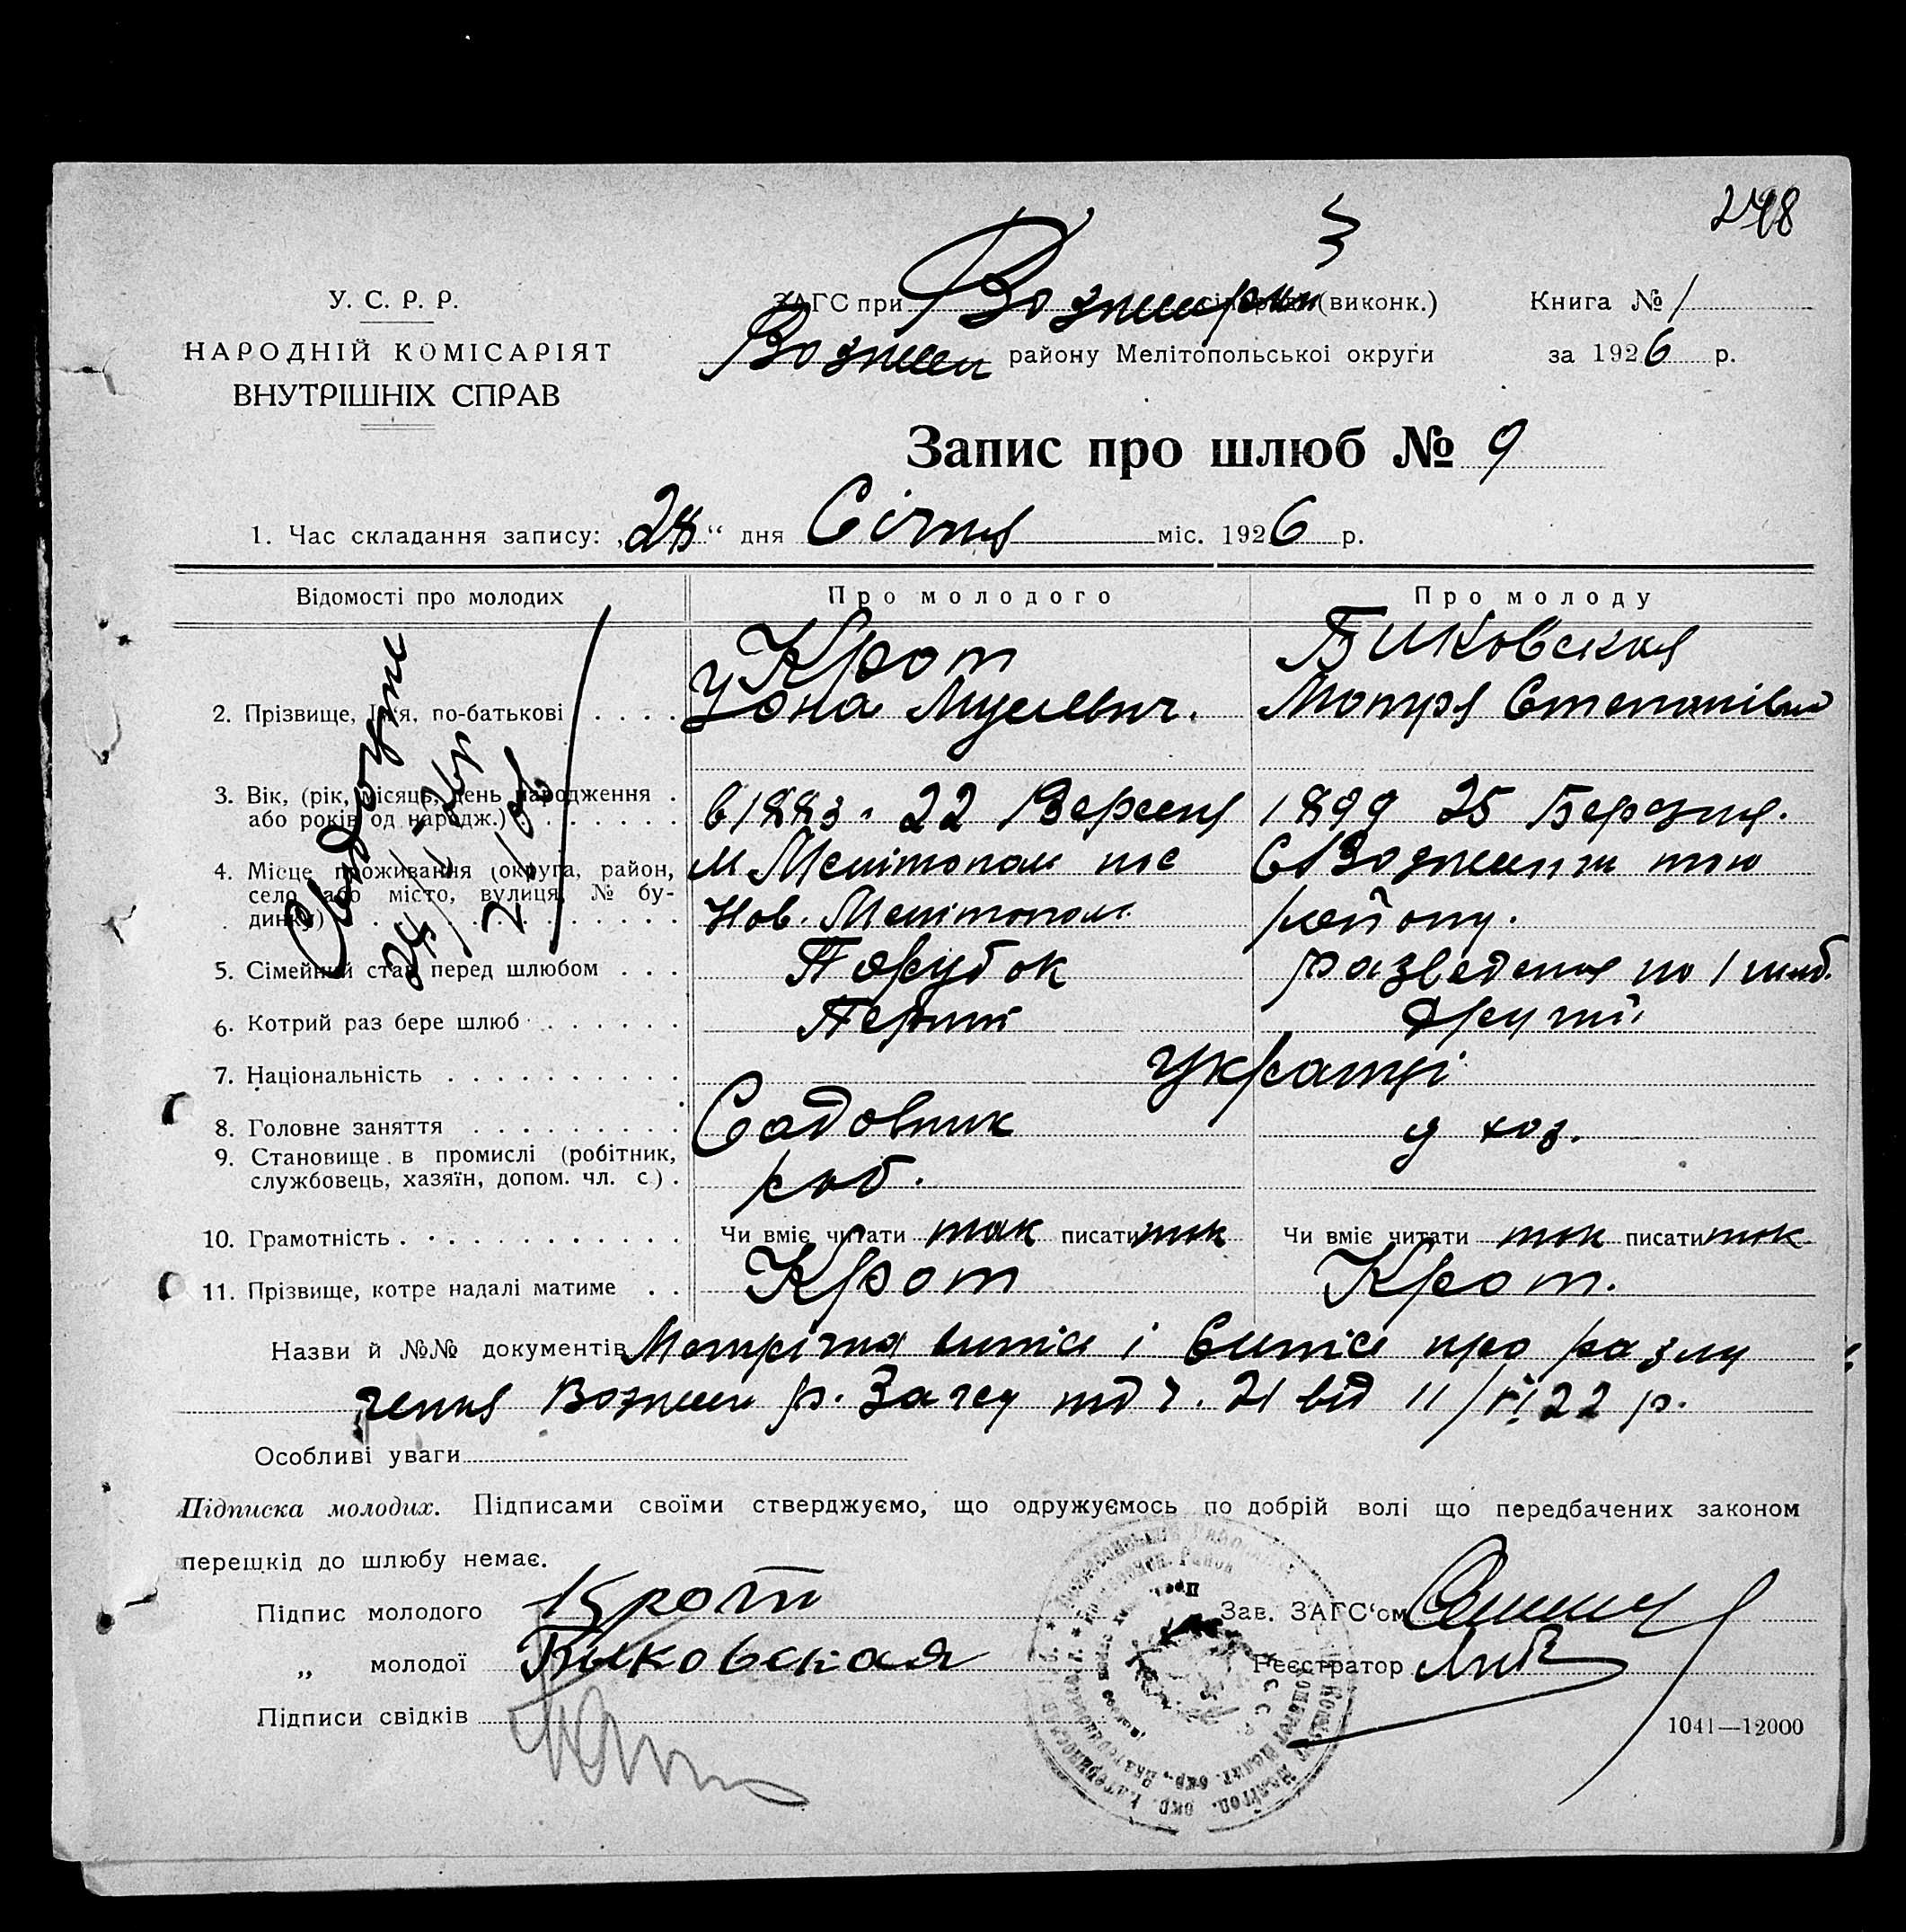 248
У. С. Р. Р.
НАРОДНІЙ КОМІСАРІЯТ
ВНУТРІШНІХ СПРАВ
ЗАГС при (виконк.)
району Мелітопольської округи
Книга № 1
за 1926 р.
Запис про шлюб № 9
1. Час складання запису: „28“ дня Січня міс. 1926 р.
Відомості про молодих Про молодого Про молоду
Крот Биковская
2. Прізвище, Ім'я, по-батькові Мотря Степанівна
3. Вік, (рік, місяць, день народження в 1883. 22 Вересня 1899 25 Березня.
або років од народж.)
4. Місце проживання (округа, район, м Мелітополь пос
село або місто, вулиця, № бу- Нов. Мелітополь району.
динку)
5. Сімейний стан перед шлюбом Парубок разведеная по 1 шлюб.
6. Котрий раз бере шлюб Перший Другий
7. Національність Українці
8. Головне заняття Садовник д хоз.
9. Становище в промислі (робітник, роб.
службовець, хазяїн, допом. чл. с.)
10. Грамотність Чи вміє читати так писати так Чи вміє читати так писати так
11. Прізвище, котре надалі матиме Крот Крот.
Назви й №№ документів Метрічна випіс і випіс про разлу
чення Вознесен р. Загсу під ч. 21 від 11/VI 22 р.
Особливі уваги
Підписка молодих. Підписами своїми стверджуємо, що одружуємось по добрій волі що передбачених законом
перешкід до шлюбу немає.
Підпис молодого Крот Зав. ЗАГС'ом
„ молодої Биковская Реєстратор
Підписи свідків
1041—12000